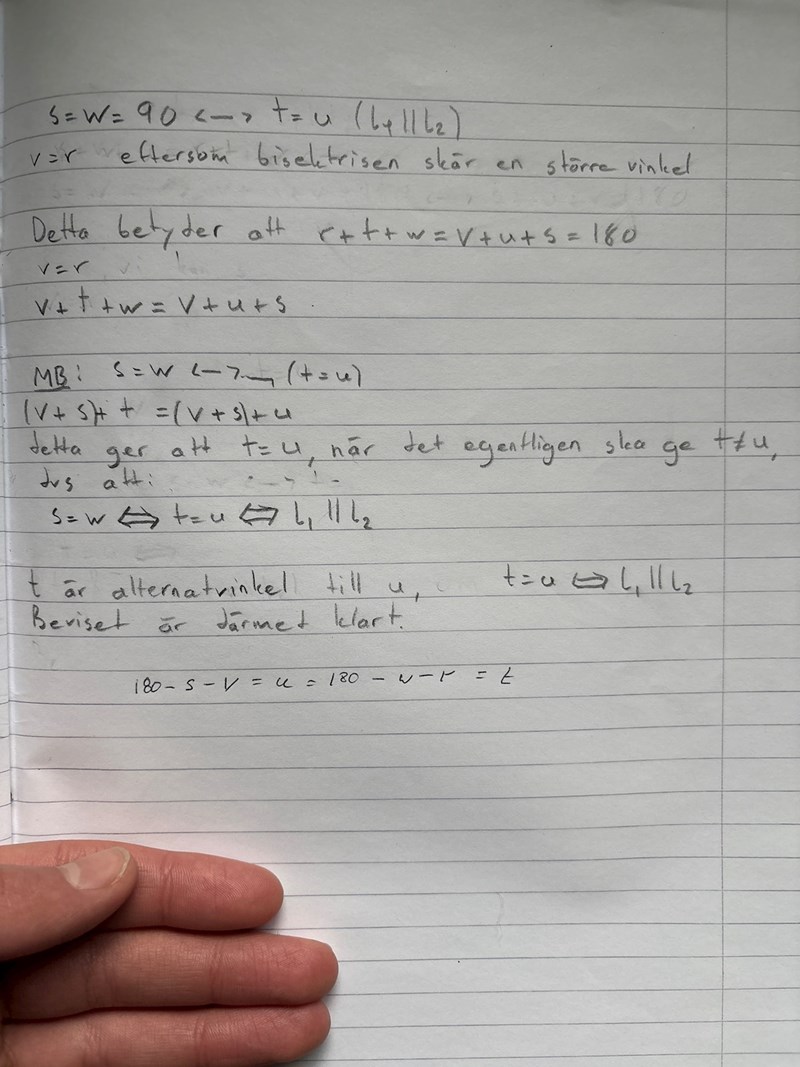 s=w=90 <-> t=u (L1||L2)
v=r eftersom bisektrisen skär en större vinkel
Detta betyder att r+t+w=v+u+s=180
v=r
v+t+w=v+u+s
MB: s=w <-> ¬(t=u)
(v+s)+t=(v+s)+u
detta ger att t=u, när det egentligen ska ge t≠u,
dvs att:
s=w ⇔ t=u ⇔ L1||L2
t är alternatvinkel till u, t=u ⇔ L1||L2
Beviset är därmet klart.
180-s-v=u=180-w-r=t